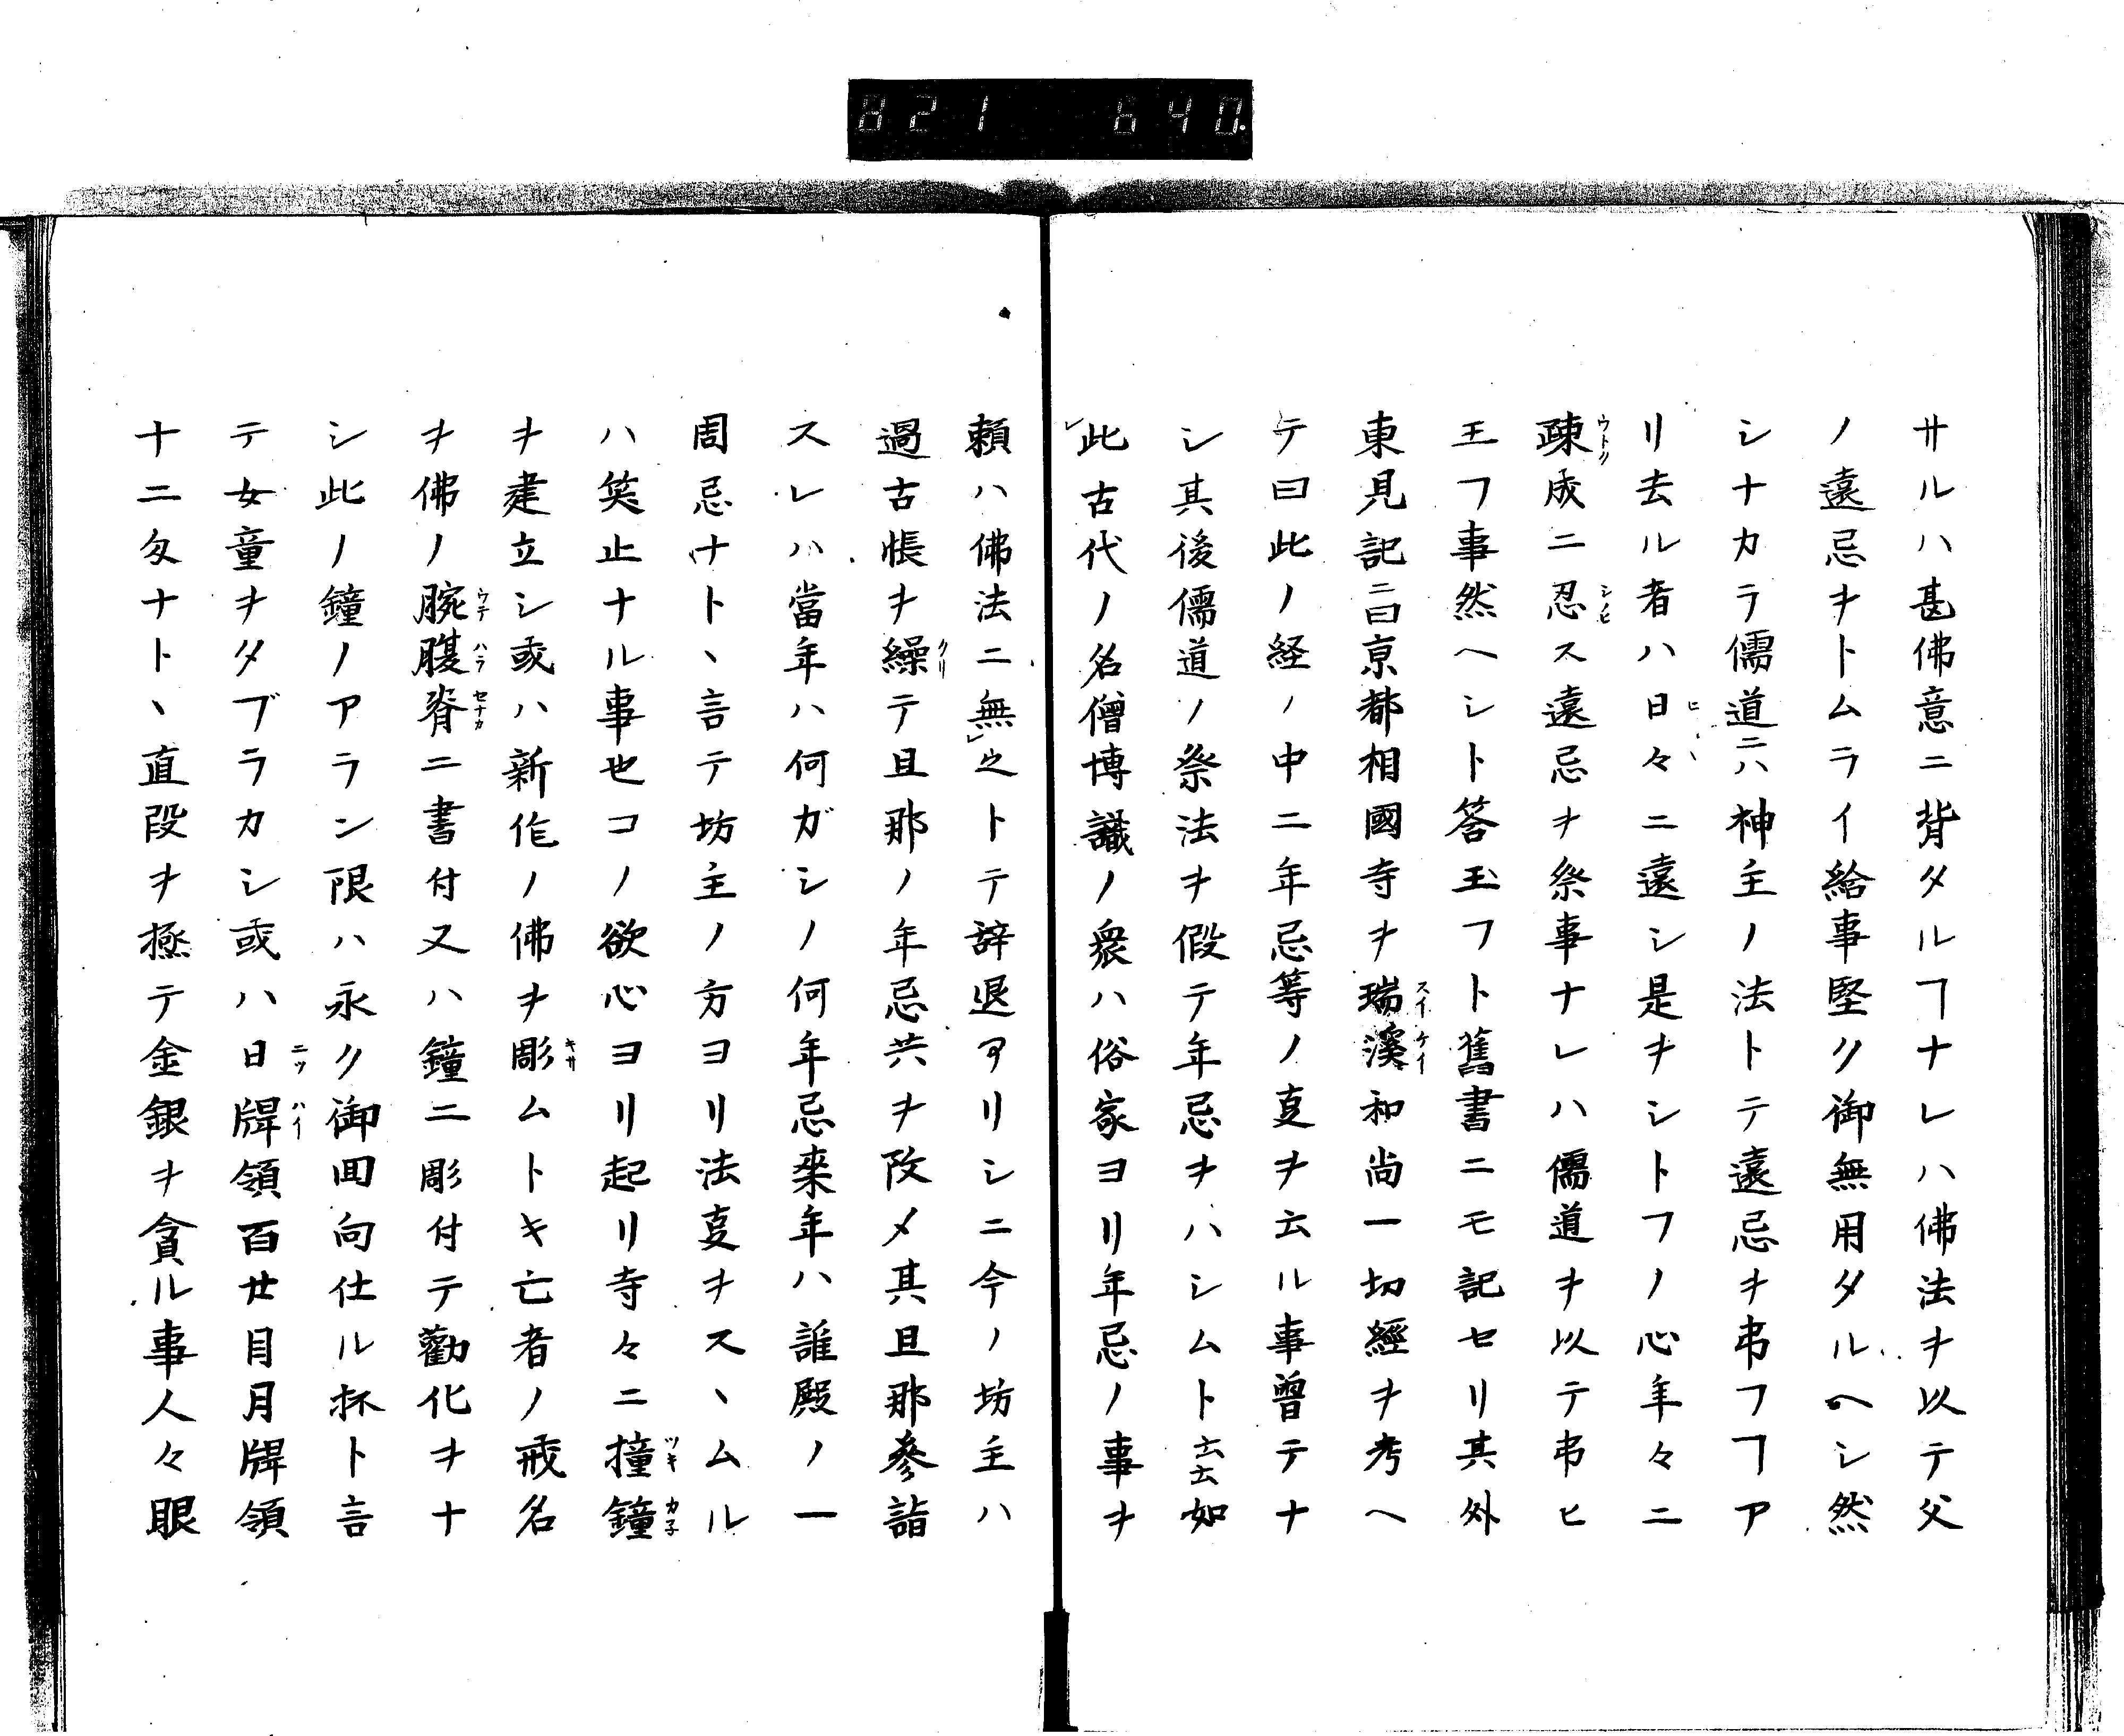 821 640.
サルハ甚佛意ニ背タルヿナレハ佛法ヲ以テ父
ノ遠忌ヲトムライ給事堅ク御無用タルヘシ然
シナカラ儒道ニハ神主ノ法トテ遠忌ヲ弔フヿア
リ去ル者ハ日々ニ遠シ是ヲシトフノ心年々ニ
疎成ニ忍ス遠忌ヲ祭事ナレハ儒道ヲ以テ弔ヒ
王フ事然ヘシト答玉フト舊書ニモ記セリ其外
東見記ニ曰京都相國寺ヲ瑞溪和尚一切經ヲ考ヘ
テ曰此ノ経ノ中ニ年忌等ノ㕝ヲ云ル事曽テナ
シ其後儒道ノ祭法ヲ假テ年忌ヲハシムト云云如
此古代ノ名僧博識ノ衆ハ俗家ヨリ年忌ノ事ヲ
頼ハ佛法ニ無之トテ辞退アリシニ今ノ坊主ハ
過古帳ヲ繰テ旦那ノ年忌共ヲ改メ其旦那參詣
スレハ當年ハ何ガシノ何年忌来年ハ誰殿ノ一
周忌ナト、言テ坊主ノ方ヨリ法㕝ヲス、ムル
ハ笑止ナル事也コノ欲心ヨリ起リ寺々ニ撞鐘
ヲ建立シ或ハ新作ノ佛ヲ彫ムトキ亡者ノ戒名
ヲ佛ノ腕腹脊ニ書付又ハ鐘ニ彫付テ勸化ヲナ
シ此ノ鐘ノアラン限ハ永ク御回向仕ル抔ト言
テ女童ヲタブラカシ或ハ日牌領百廿目月牌領
十二匁ナト、直段ヲ極テ金銀ヲ貪ル事人々眼